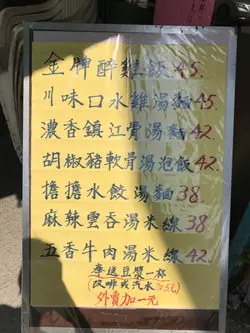 金牌醉雞飯45.
川味口水雞湯麵45.
濃香鎮江骨湯麵42.
胡椒豬軟骨湯泡飯42
擔擔水餃湯麵38.
麻辣雲吞湯米線38.
五香牛肉湯米線42.
奉送豆漿一杯
改啡或汽水加5元
外賣加一元